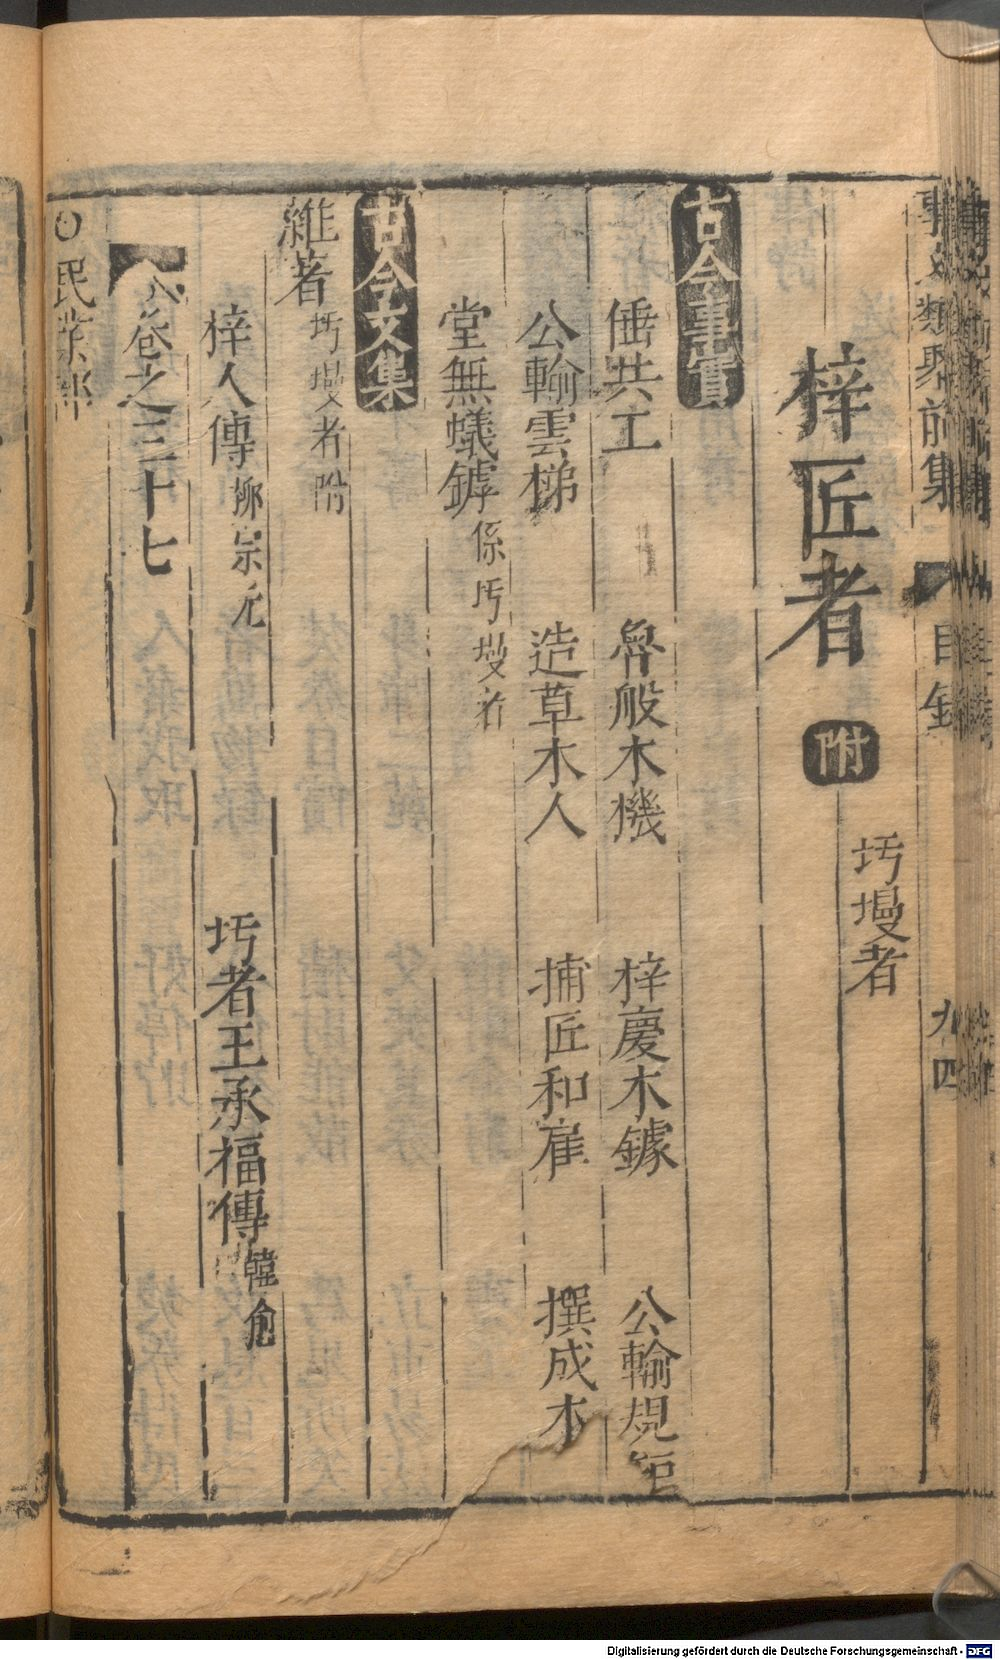 事文類聚前集 目錄 九四
梓匠者 附 圬墁者
古今事實
倕共工 魯般木機 梓慶木鐻 公輸規矩
公輸雲梯 造草木人 捕匠和雇 撰成木
堂無蟻罅 係圬墁者
古今文集
雜著 圬墁者附
梓人傳 柳宗元 圬者王承福傳 韓愈
卷之三十七
○民業部
Digitalisierung gefördert durch die Deutsche Forschungsgemeinschaft - DFG